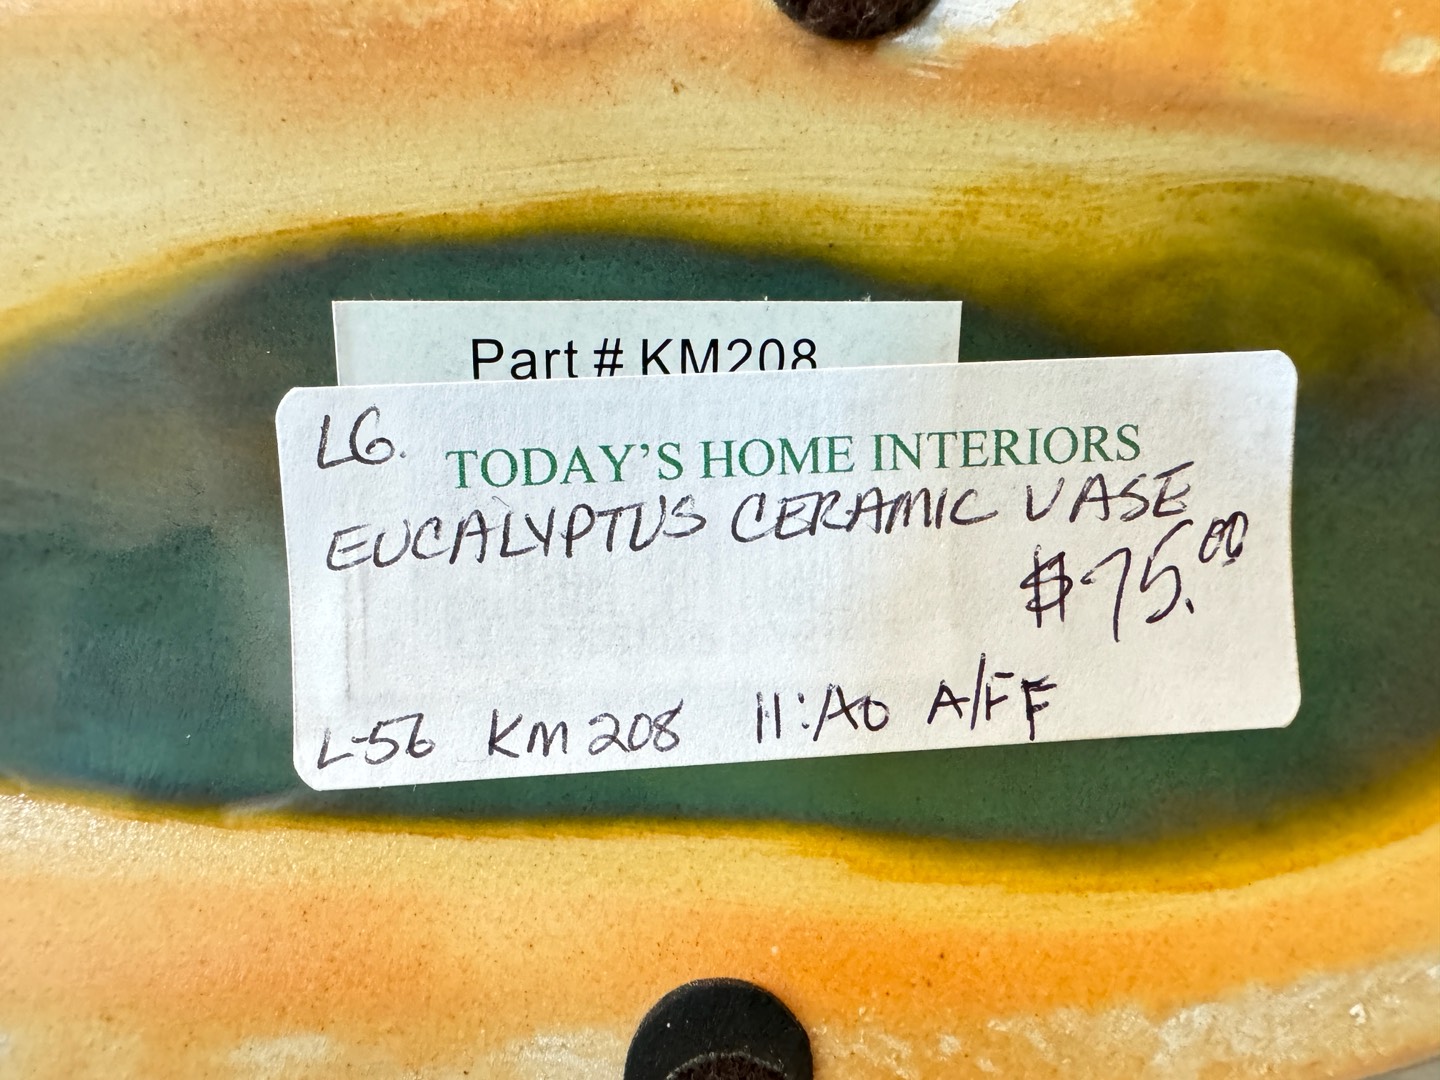 Part # KM208
LG.
TODAY'S HOME INTERIORS
EUCALYPTUS CERAMIC VASE
$75.00
L-56 KM208 11:A0 A/FF